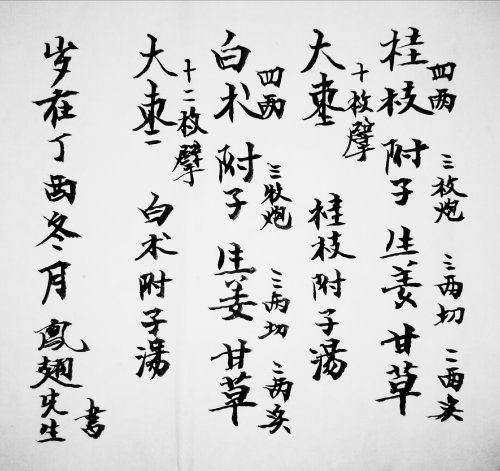 桂枝 四两 附子 三枚炮 生姜 三两切 甘草 二两炙
大枣 十枚擘 桂枝附子湯
白术 四两 附子 三枚炮 生姜 三两切 甘草 二两炙
大枣 十二枚擘 白术附子湯
岁在丁酉冬月 鳳翅先生 書